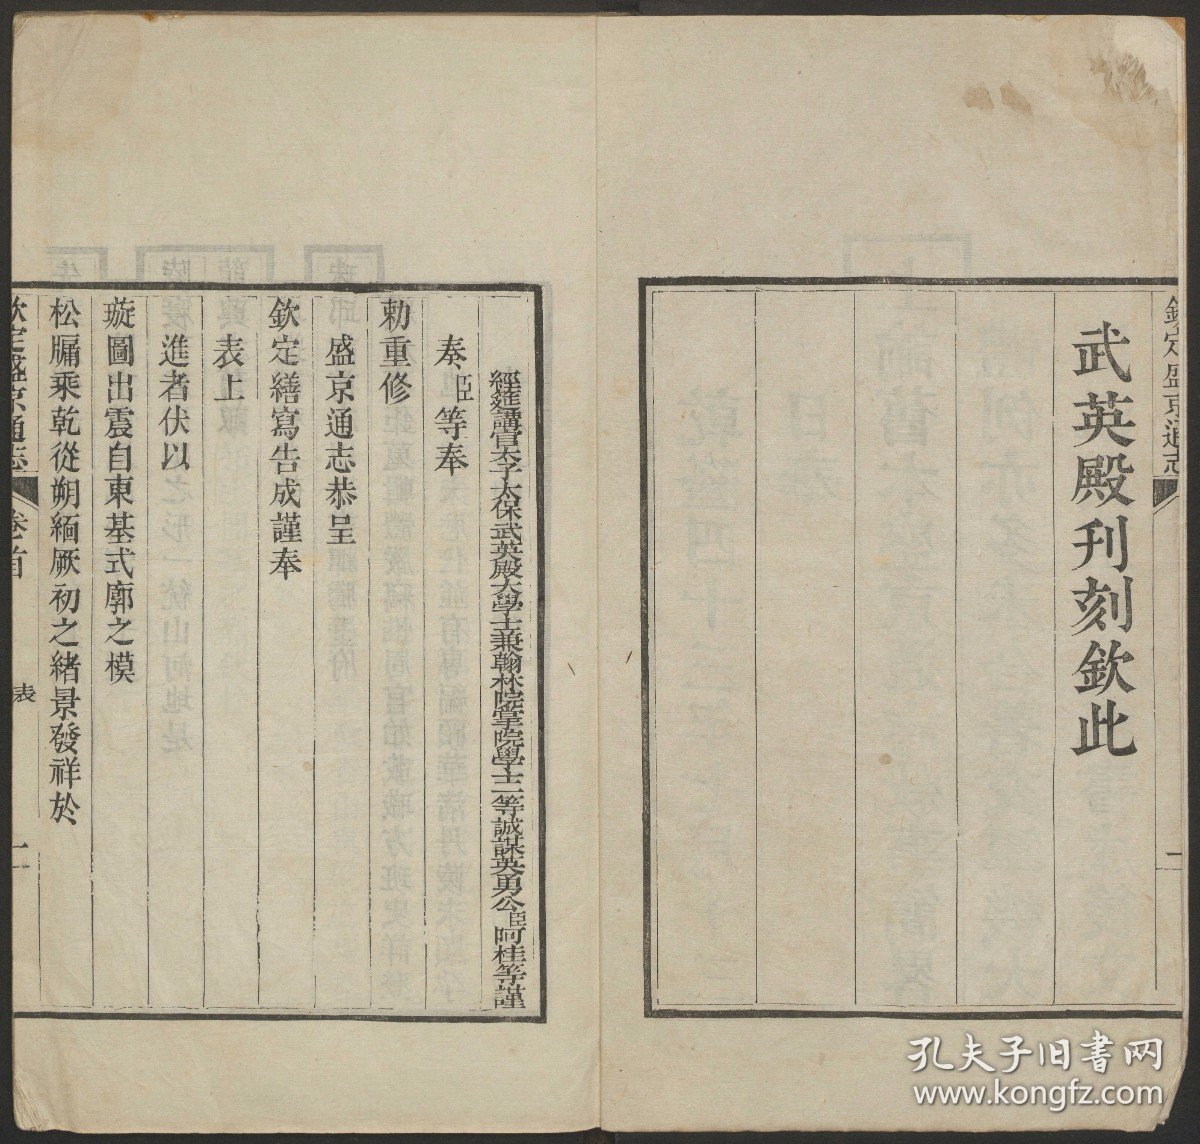 欽定盛京通志
二
武英殿刊刻欽此
經筵講官太子太保武英殿大學士兼翰林院掌院學士一等誠謀英勇公臣阿桂等謹
奏臣等奉
勅重修
盛京通志恭呈
欽定繕寫告成謹奉
表上
進者伏以
璇圖出震自東基式廓之模
松牖乘乾從朔緬厥初之緒景發祥於
欽定盛京通志
卷首
表
孔夫子旧书网
www.kongfz.com